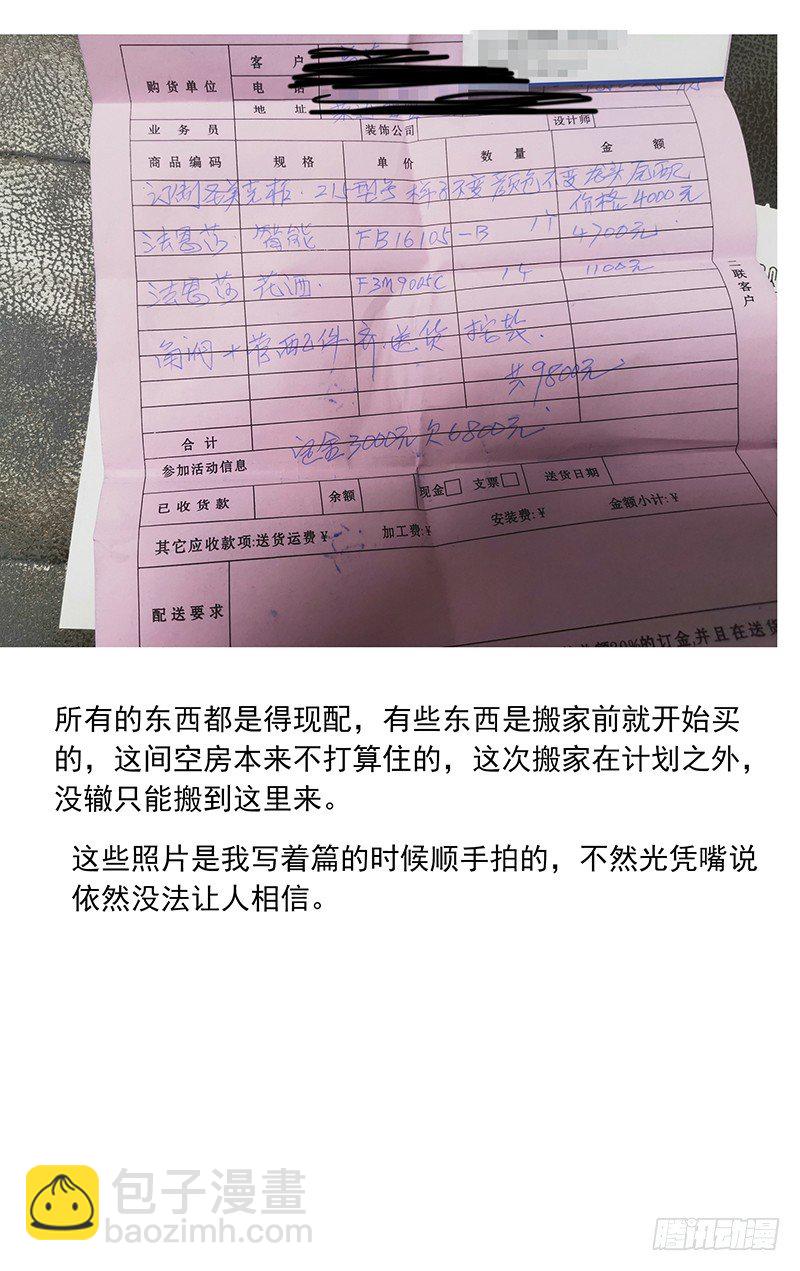 购货单位
客户
电话
地址
业务员 装饰公司 设计师
商品编码 规格 单价 数量 金额
订制 柜. 215型号 样子不变 颜色不变 龙头
价格4000元
法恩莎 智能 FB16105-B 1个 4700元
法恩莎 花洒. F3M9005C 1个 1100元
角阀+ 配件齐 送货 安装.
共9800元
合计 定金3000元 欠6800元.
参加活动信息
已收货款 余额 现金 支票 送货日期
其它应收款项:送货运费¥ 加工费:¥ 安装费:¥ 金额小计:¥
配送要求
二联客户
%的订金,并且在送货
所有的东西都是得现配，有些东西是搬家前就开始买
的，这间空房本来不打算住的，这次搬家在计划之外，
没辙只能搬到这里来。
这些照片是我写着篇的时候顺手拍的，不然光凭嘴说
依然没法让人相信。
包子漫畫
baozimh.com
腾讯动漫